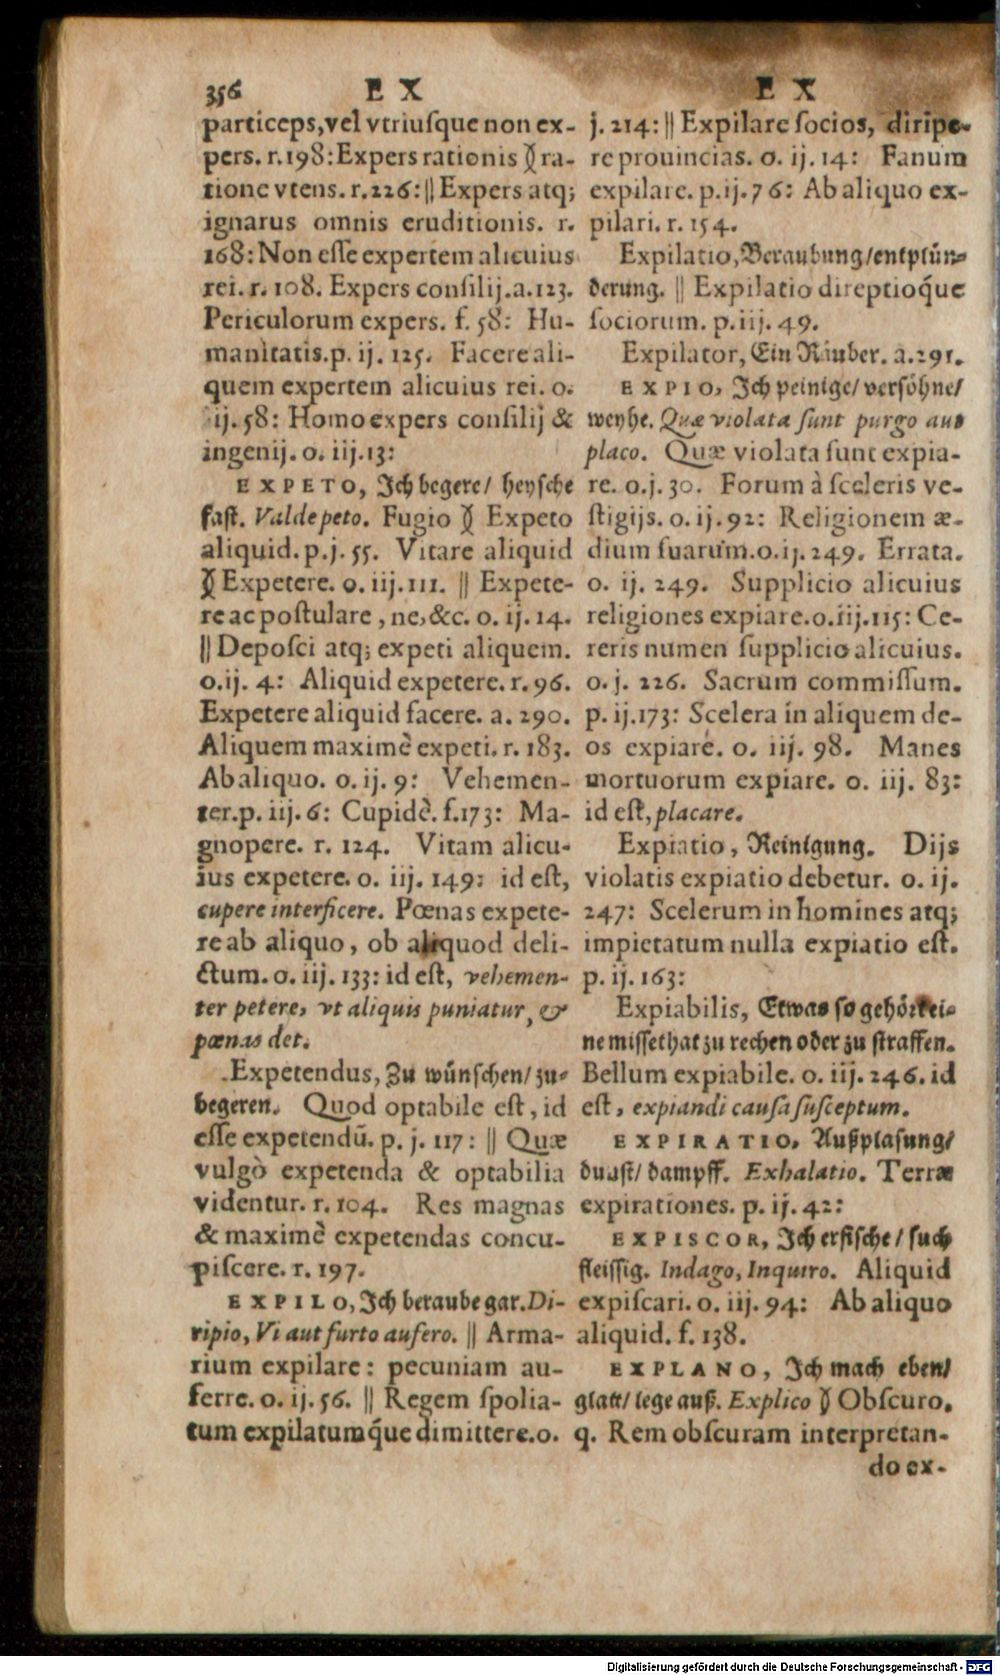 356 EX EX
particeps, vel vtriusque non ex-
pers. r. 198: Expers rationis ꝸ ra-
tione vtens. r. 226: || Expers atq;
ignarus omnis eruditionis. r.
168: Non esse expertem alicuius
rei. r. 108. Expers consilij. a. 123.
Periculorum expers. f. 58: Hu-
manitatis. p. ij. 125. Facere ali-
quem expertem alicuius rei. o.
ij. 58: Homo expers consilij &
ingenij. o. iij. 13:
EXPETO, Ich begere/ heysche
fast. Valde peto. Fugio ꝸ Expeto
aliquid. p. j. 55. Vitare aliquid
ꝸ Expetere. o. iij. 111. || Expete-
re ac postulare, ne, &c. o. ij. 14.
|| Deposci atq; expeti aliquem.
o. ij. 4: Aliquid expetere. r. 96.
Expetere aliquid facere. a. 290.
Aliquem maximè expeti. r. 183.
Ab aliquo. o. ij. 9: Vehemen-
ter. p. iij. 6: Cupidè. f. 173: Ma-
gnopere. r. 124. Vitam alicu-
ius expetere. o. iij. 149: id est,
cupere interficere. Pœnas expete-
re ab aliquo, ob aliquod deli-
ctum. o. iij. 133: id est, vehemen-
ter petere, vt aliquis puniatur, &
pœnas det.
Expetendus, Zu wünschen/ zu-
begeren. Quod optabile est, id
esse expetendũ. p. j. 117: || Quæ
vulgò expetenda & optabilia
videntur. r. 104. Res magnas
& maximè expetendas concu-
piscere. r. 197.
EXPILO, Ich beraube gar. Di-
ripio, Vi aut furto aufero. || Arma-
rium expilare: pecuniam au-
ferre. o. ij. 56. || Regem spolia-
tum expilatumq́ue dimittere. o.
j. 214: || Expilare socios, diripe-
re prouincias. o. ij. 14: Fanum
expilare. p. ij. 76: Ab aliquo ex-
pilari. r. 154.
Expilatio, Beraubung/ entplün-
derung. || Expilatio direptioq́ue
sociorum. p. iij. 49.
Expilator, Ein Räuber. a. 291.
EXPIO, Ich peinige/ versöhne/
weyhe. Quæ violata sunt purgo aut
placo. Quæ violata sunt expia-
re. o. j. 30. Forum à sceleris ve-
stigijs. o. ij. 92: Religionem æ-
dium suarum. o. ij. 249. Errata.
o. ij. 249. Supplicio alicuius
religiones expiare. o. iij. 115: Ce-
reris numen supplicio alicuius.
o. j. 226. Sacrum commissum.
p. ij. 173: Scelera in aliquem de-
os expiare. o. iij. 98. Manes
mortuorum expiare. o. iij. 83:
id est, placare.
Expiatio, Reinigung. Dijs
violatis expiatio debetur. o. ij.
247: Scelerum in homines atq;
impietatum nulla expiatio est.
p. ij. 163:
Expiabilis, Etwas so gehört ei-
ne missethat zu rechen oder zu straffen.
Bellum expiabile. o. iij. 246. id
est, expiandi causa susceptum.
EXPIRATIO, Außplasung/
dunst/ dampff. Exhalatio. Terræ
expirationes. p. ij. 42:
EXPISCOR, Ich erfische/ such
fleissig. Indago, Inquiro. Aliquid
expiscari. o. iij. 94: Ab aliquo
aliquid. f. 138.
EXPLANO, Ich mach eben/
glatt/ lege auß. Explico ꝸ Obscuro.
q. Rem obscuram interpretan-
do ex-
Digitalisierung gefördert durch die Deutsche Forschungsgemeinschaft - DFG